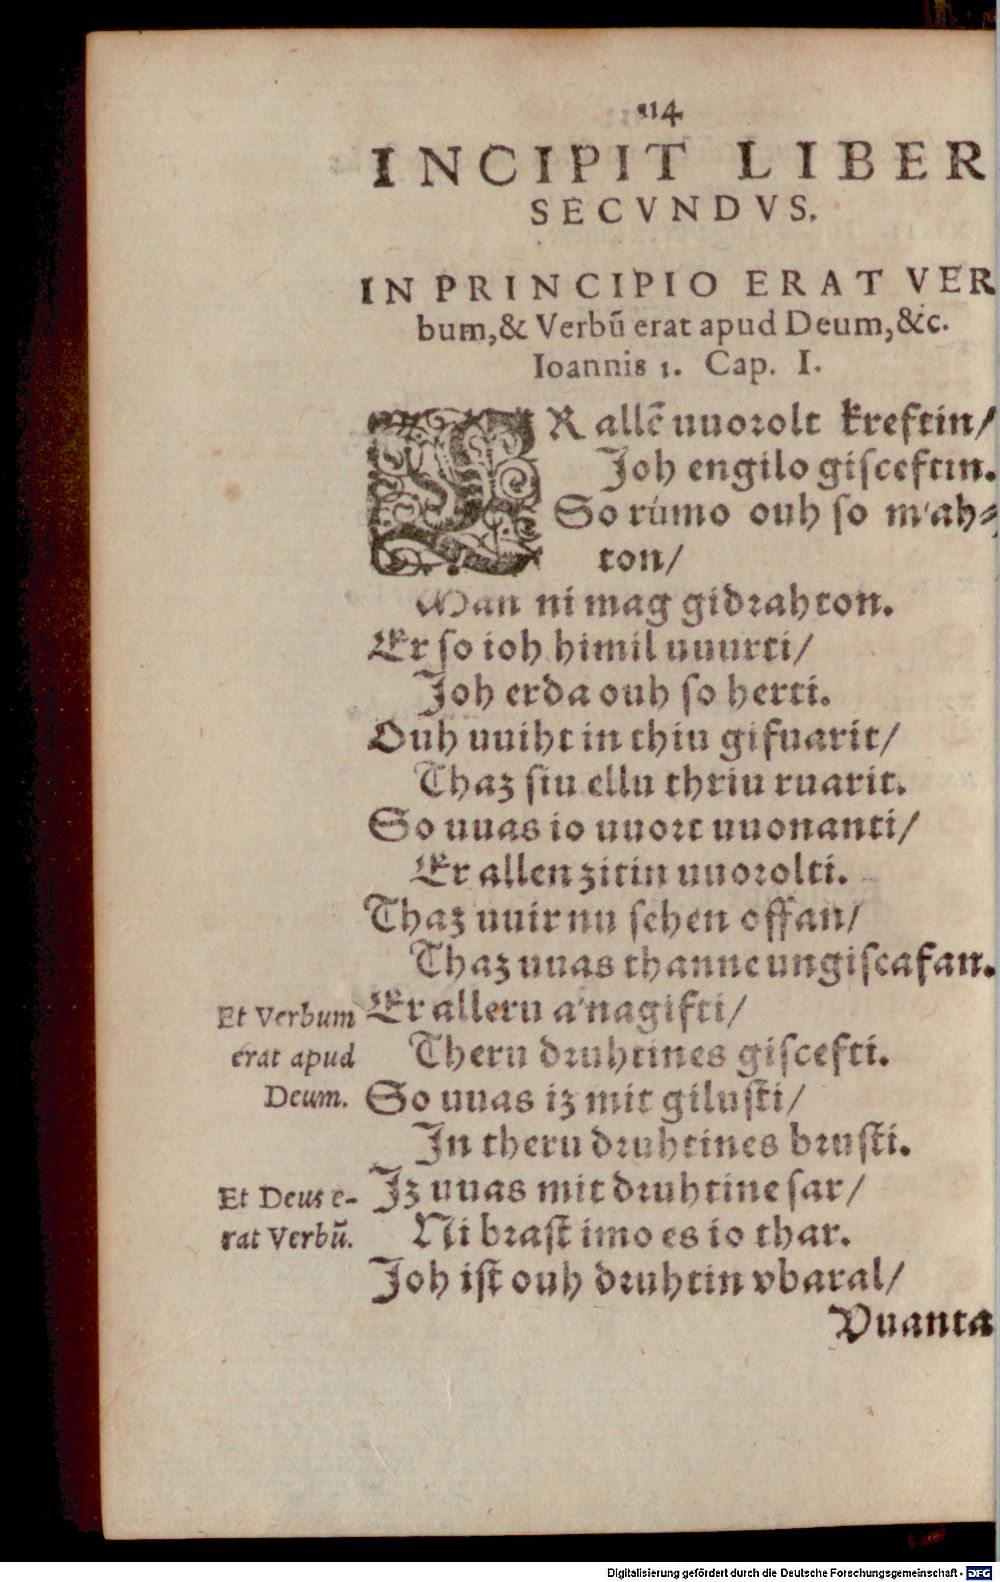 114
INCIPIT LIBER
SECVNDVS.
IN PRINCIPIO ERAT VER
bum, & Verbũ erat apud Deum, &c.
Ioannis 1. Cap. I.
ER allẽ uuorolt kreftin/
Joh engilo gisceftin.
So rúmo ouh so m'ah-
ton/
Man ni mag gidrahton.
Er so ioh himil uuurti/
Joh erda ouh so herti.
Ouh uuiht in thiu gifuarit/
Thaz siu ellu thriu ruarit.
So uuas io uuort uuonanti/
Er allen zitin uuorolti.
Thaz uuir nu sehen offan/
Thaz uuas thanne ungiscafan.
Et Verbum erat apud Deum.
Er alleru a'nagifti/
Theru druhtines giscefti.
So uuas iz mit gilusti/
In theru druhtines brusti.
Et Deus e-
rat Verbũ.
Jz uuas mit druhtine sar/
Ni brast imo es io thar.
Joh ist ouh druhtin vbaral/
Vuanta
Digitalisierung gefördert durch die Deutsche Forschungsgemeinschaft - DFG